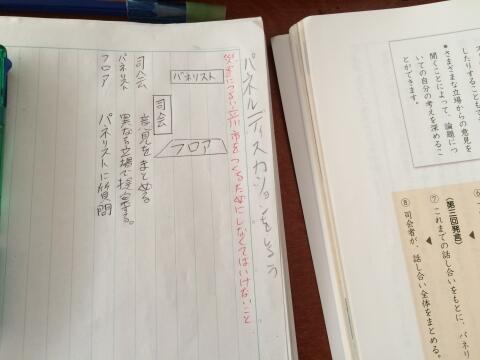 パネルディスカッションをしよう
災害につよい立川市をつくるためにしなくてはいけないこと
パネリスト
司会
フロア
司会 意見をまとめる
パネリスト 異なる立場で提案する。
フロア パネリストに質問
したりすることもで
●さまざまな立場からの意見を
聞くことによって、論題につ
いての自分の考えを深めるこ
とができます。
⑥
〈第三回発言〉
⑦ これまでの話し合いをもとに、パネリ
⑧ 司会者が、話し合い全体をまとめる。